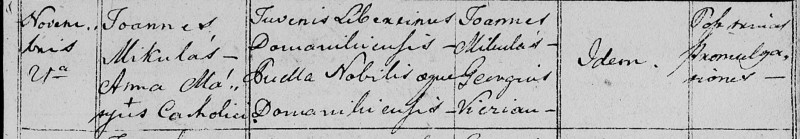 Novem-
bris
21a
Joannes
Mikulás -
Anna Má-
jus Catholici
Juvenis Libertinus
Domaniliensis -
Puella Nobilis aeque
Domaniliensis -
Joannes
Mikulás -
Georgius
Idem.
Post trinas
Promulga-
tiones -